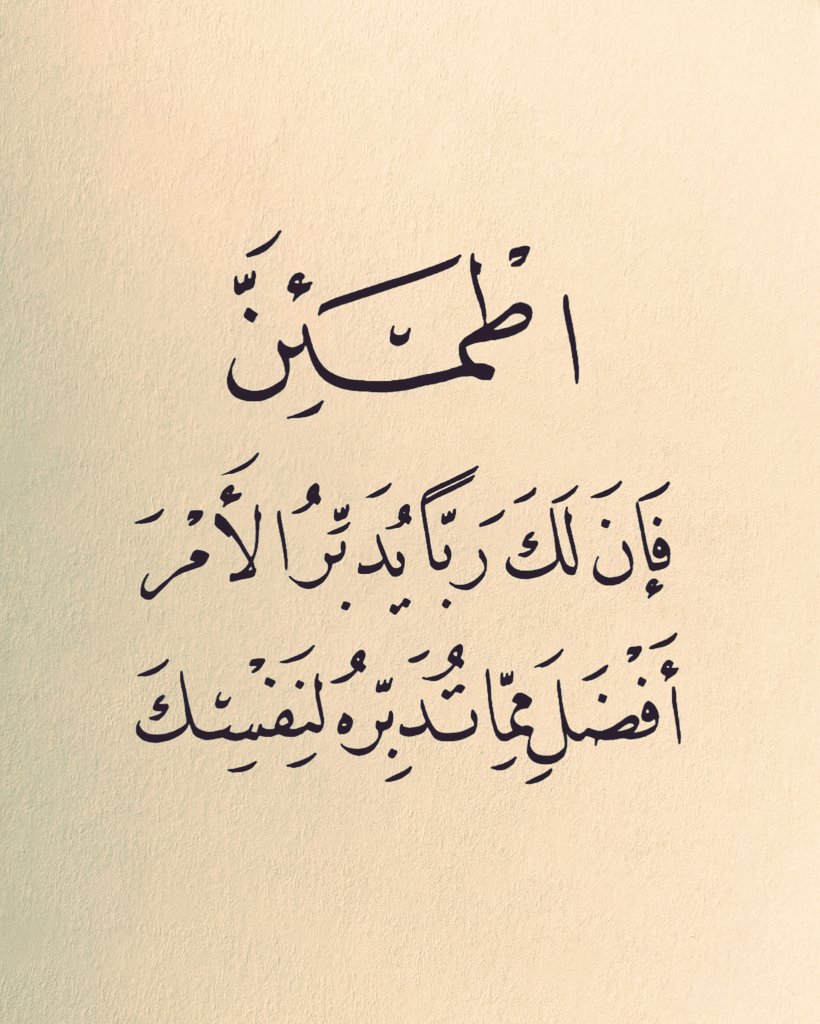 اطْمَئِنَّ
فَإنَ لَكَ رَبّاً يُدَبِّرُ الأَمْرَ
أَفْضَلِ مِمِّا تُدَبِّرهُ لَنِفَسِْكَ